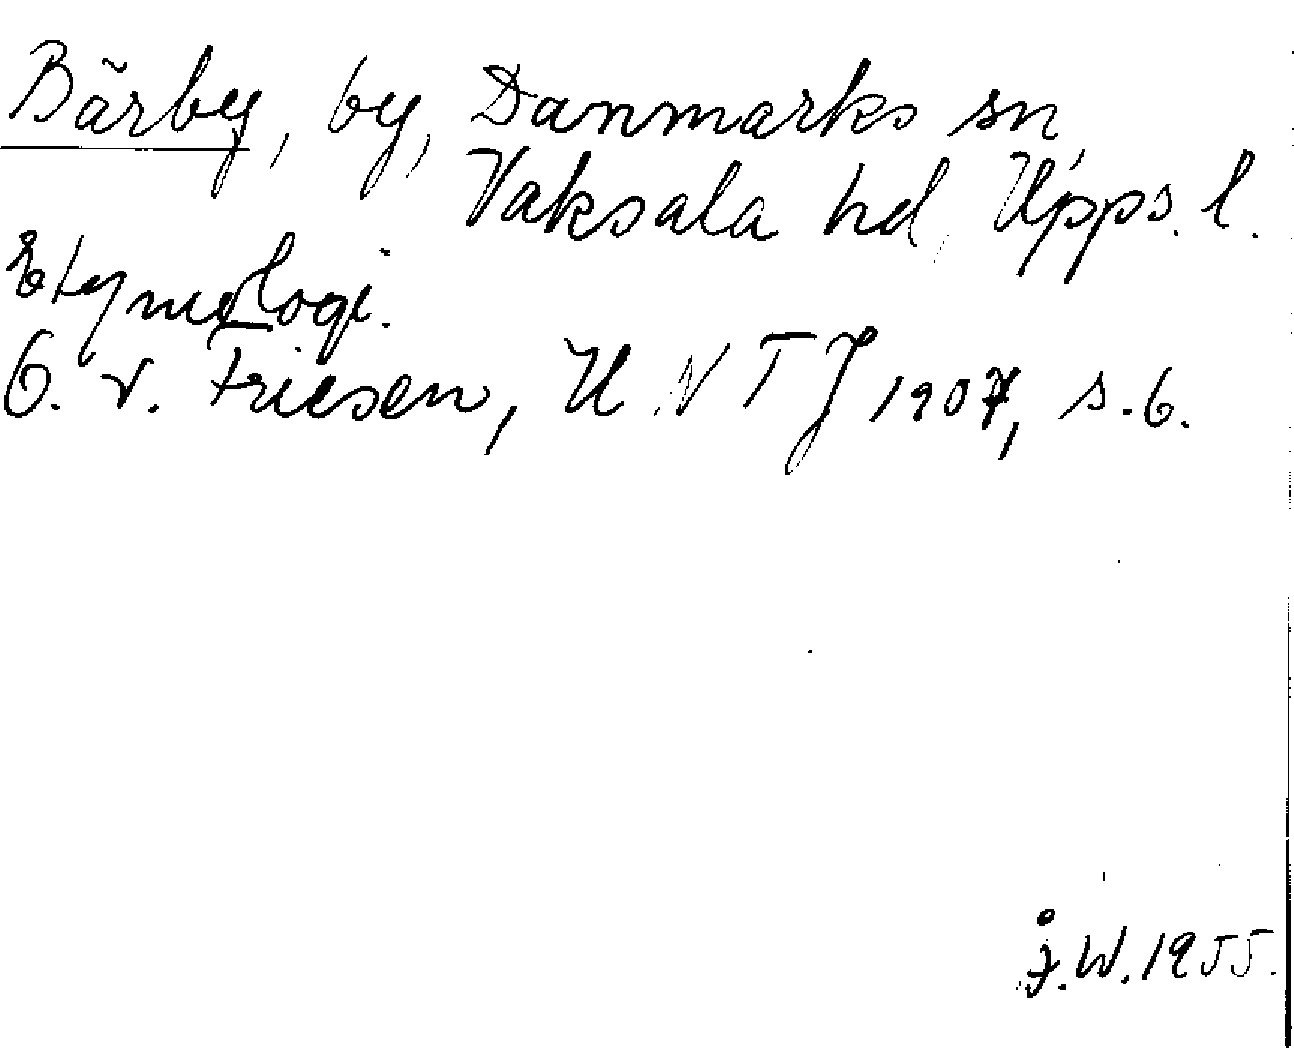 Bärby, by, Danmarks sn,
Vaksala hd, Upps. l.
Etymologi.
O. v. Friesen, UNTJ 1907, s. 6.
Å.W. 1955.